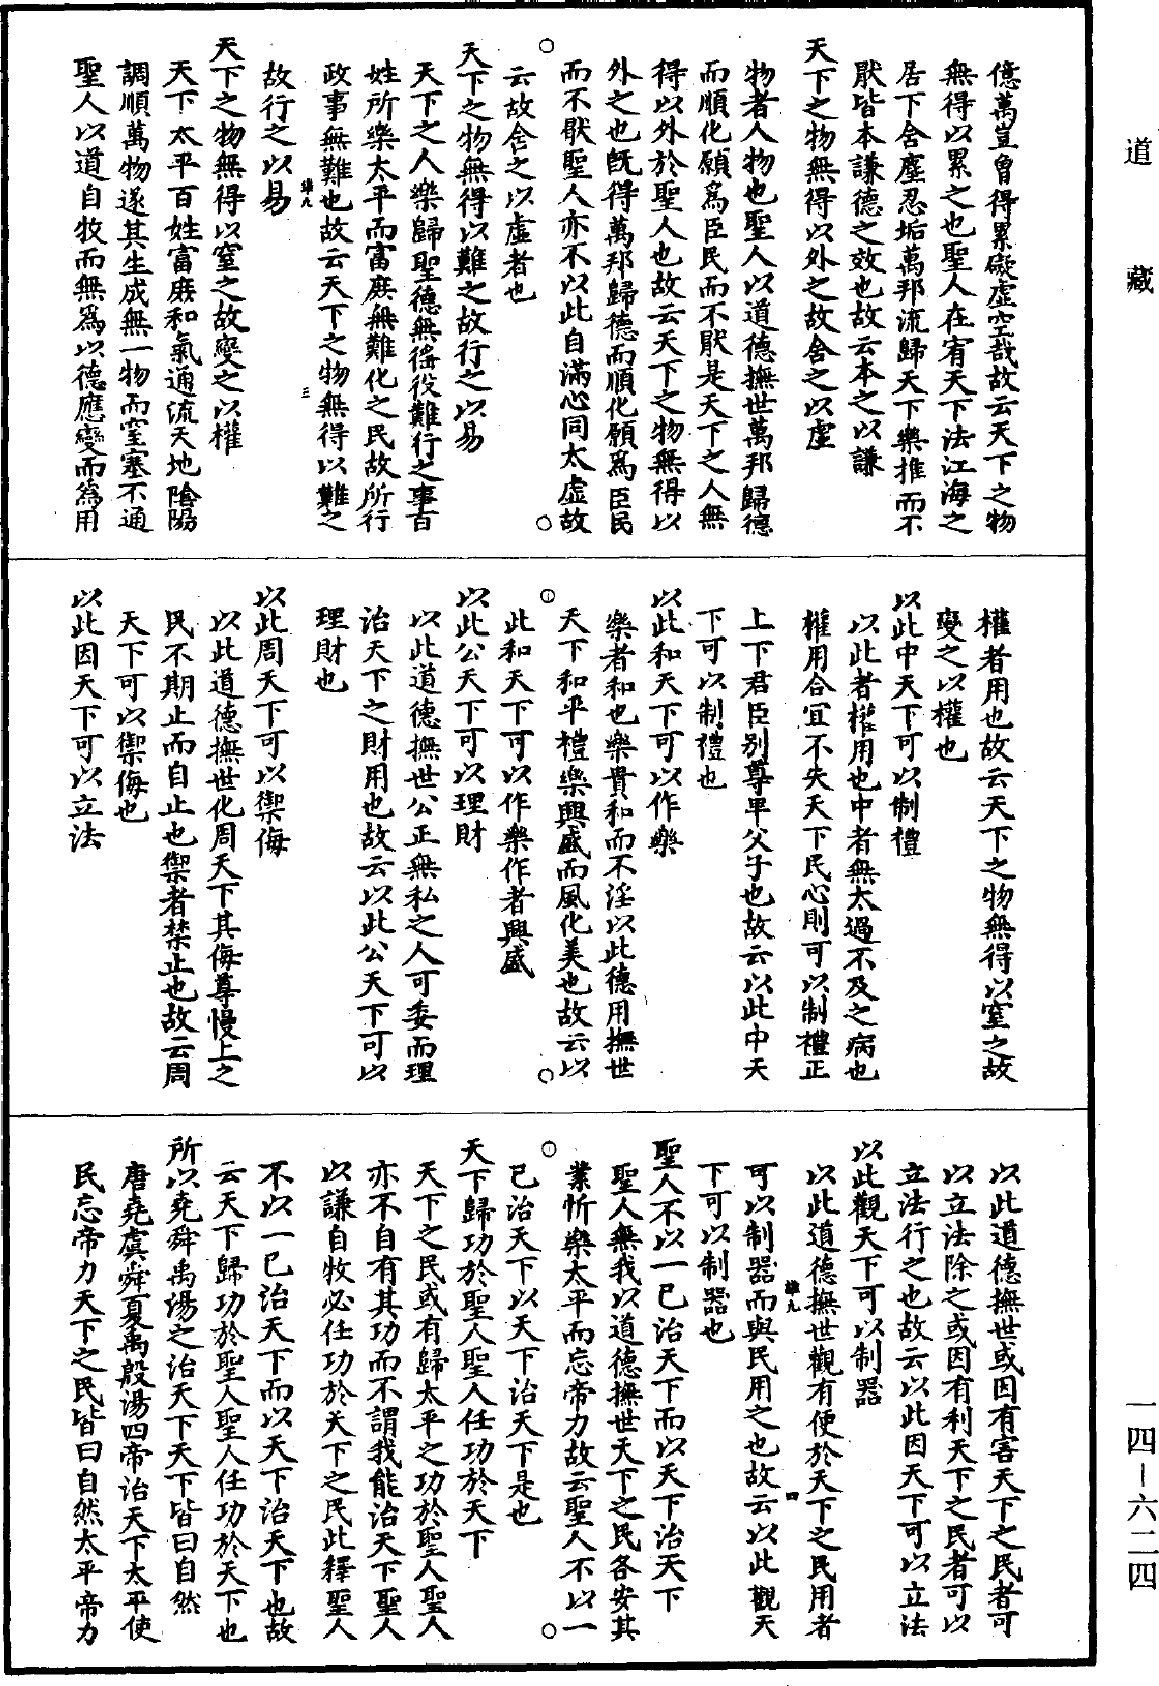 道藏
億萬豈曾得累礙虛空哉故云天下之物
無得以累之也聖人在宥天下法江海之
居下舍塵忍垢萬邦流歸天下樂推而不
厭皆本謙德之效也故云本之以謙
天下之物無得以外之故舍之以虛
物者人物也聖人以道德撫世萬邦歸德
而順化願爲臣民而不厭是天下之人無
得以外於聖人也故云天下之物無得以
外之也旣得萬邦歸德而順化願爲臣民
而不厭聖人亦不以此自滿心同太虛故
云故舍之以虛者也
天下之物無得以難之故行之以易
天下之人樂歸聖德無徭役難行之事百
姓所樂太平而富庶無難化之民故所行
政事無難也故云天下之物無得以難之
故行之以易
三
天下之物無得以窒之故變之以權
天下太平百姓富庶和氣通流天地隂陽
調順萬物遂其生成無一物而窒塞不通
聖人以道自牧而無爲以德應變而爲用
權者用也故云天下之物無得以窒之故
變之以權也
以此中天下可以制禮
以此者權用也中者無太過不及之病也
權用合宜不失天下民心則可以制禮正
上下君臣别尊卑父子也故云以此中天
下可以制禮也
以此和天下可以作樂
樂者和也樂貴和而不淫以此德用撫世
天下和平禮樂興盛而風化美也故云以
此和天下可以作樂作者興盛
以此公天下可以理財
以此道德撫世公正無私之人可委而理
治天下之財用也故云以此公天下可以
理財也
以此周天下可以禦侮
以此道德撫世化周天下其侮尊慢上之
民不期止而自止也禦者禁止也故云周
天下可以禦侮也
以此因天下可以立法
以此道德撫世或因有害天下之民者可
以立法除之或因有利天下之民者可以
立法行之也故云以此因天下可以立法
以此觀天下可以制器
以此道德撫世觀有便於天下之民用者
可以制器而與民用之也故云以此觀天
四
下可以制器也
聖人不以一已治天下而以天下治天下
聖人無我以道德撫世天下之民各安其
業忻樂太平而忘帝力故云聖人不以一
已治天下以天下治天下是也
天下歸功於聖人聖人任功於天下
天下之民或有歸太平之功於聖人聖人
亦不自有其功而不謂我能治天下聖人
以謙自牧必任功於天下之民此釋聖人
不以一已治天下而以天下治天下也故
云天下歸功於聖人聖人任功於天下也
所以堯舜禹湯之治天下天下皆曰自然
唐堯虞舜夏禹殷湯四帝治天下太平使
民忘帝力天下之民皆曰自然太平帝力
一四—六二四